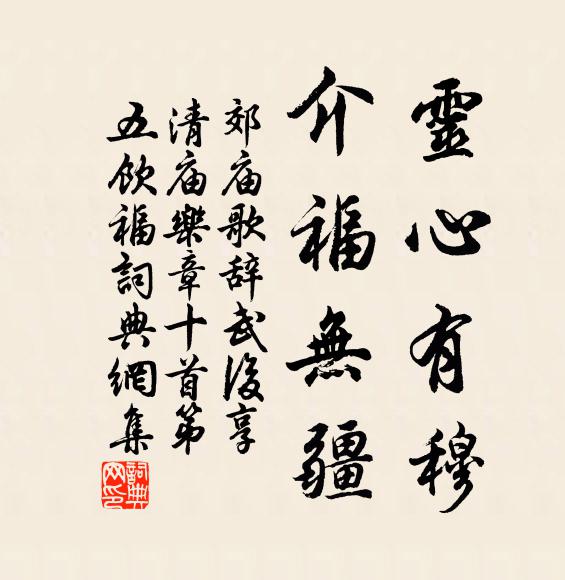 靈心有穆
介福無疆
郊庙歌辞武後享
清庙樂章十首第
五飲福詞典網集
詞典网印